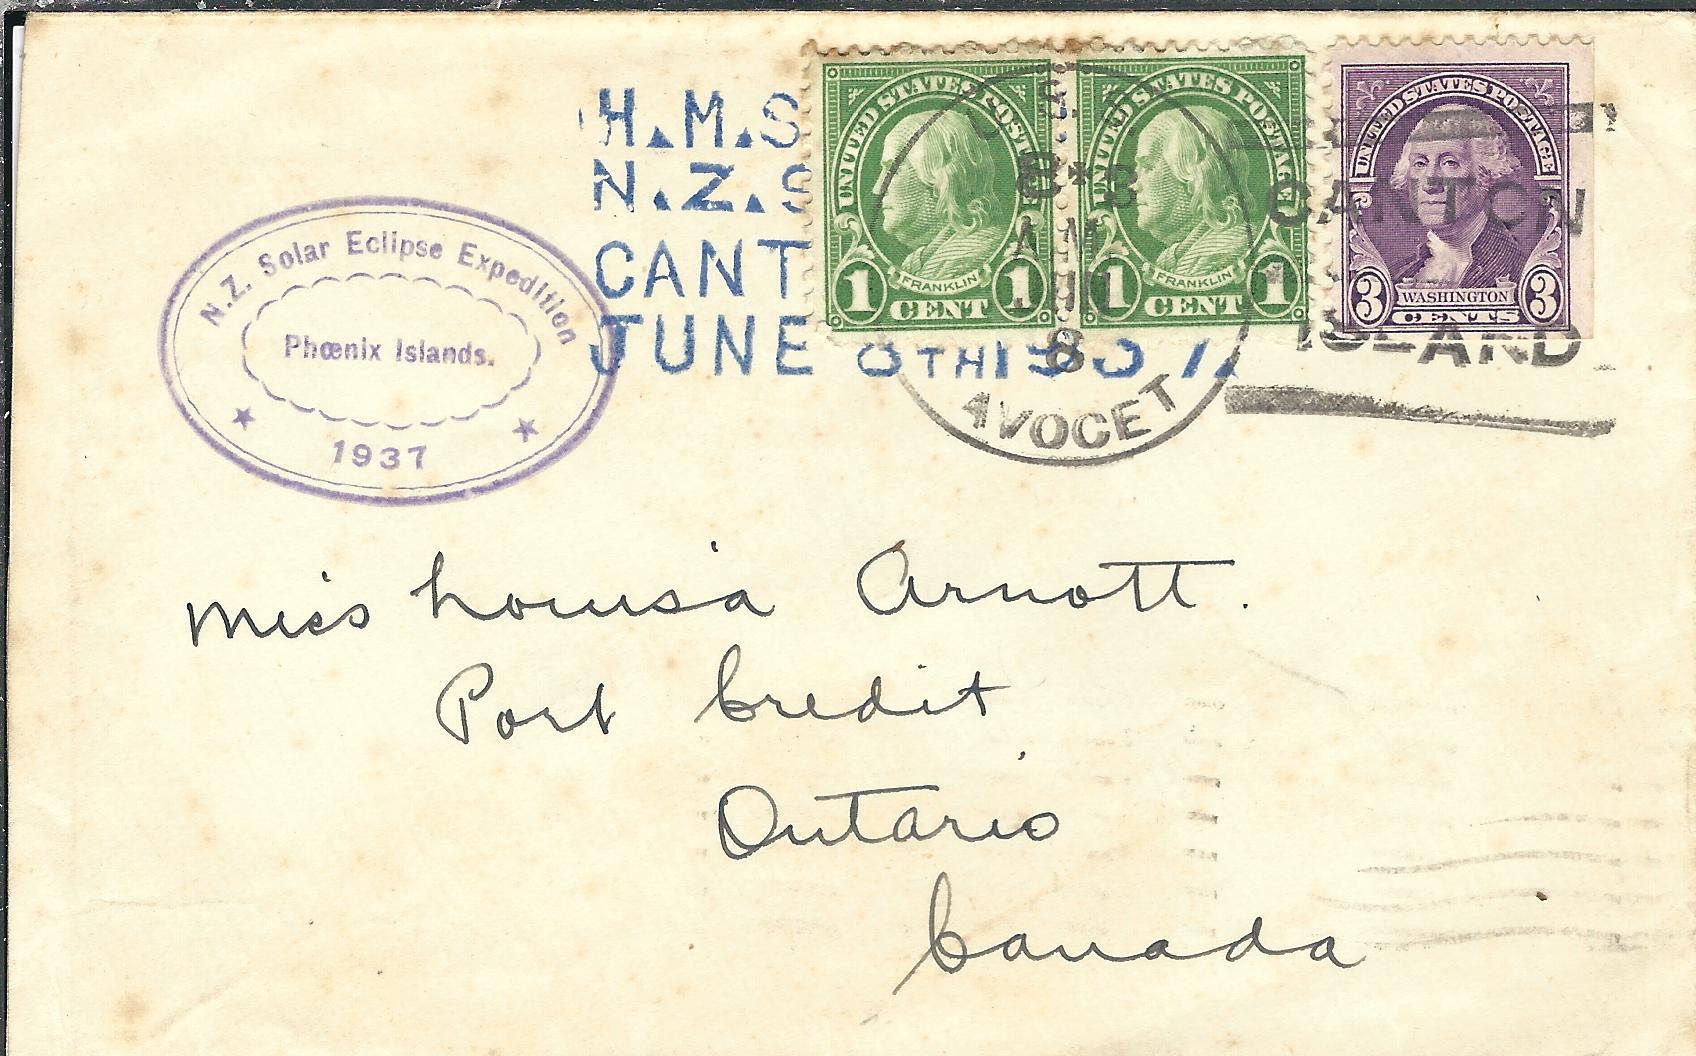 H.M.S
N.Z.S
CANT
JUNE 8TH 1937.
N.Z. Solar Eclipse Expedition
Phœnix Islands.
1937
UNITED STATES POSTAGE
FRANKLIN
1 CENT 1
UNITED STATES POSTAGE
FRANKLIN
1 CENT 1
UNITED STATES POSTAGE
WASHINGTON
3 CENTS 3
U.S.S.
AM
JUN
8
AVOCET
CANTON
ISLAND
Miss Louisa Arnott.
Port Credit
Ontario
Canada